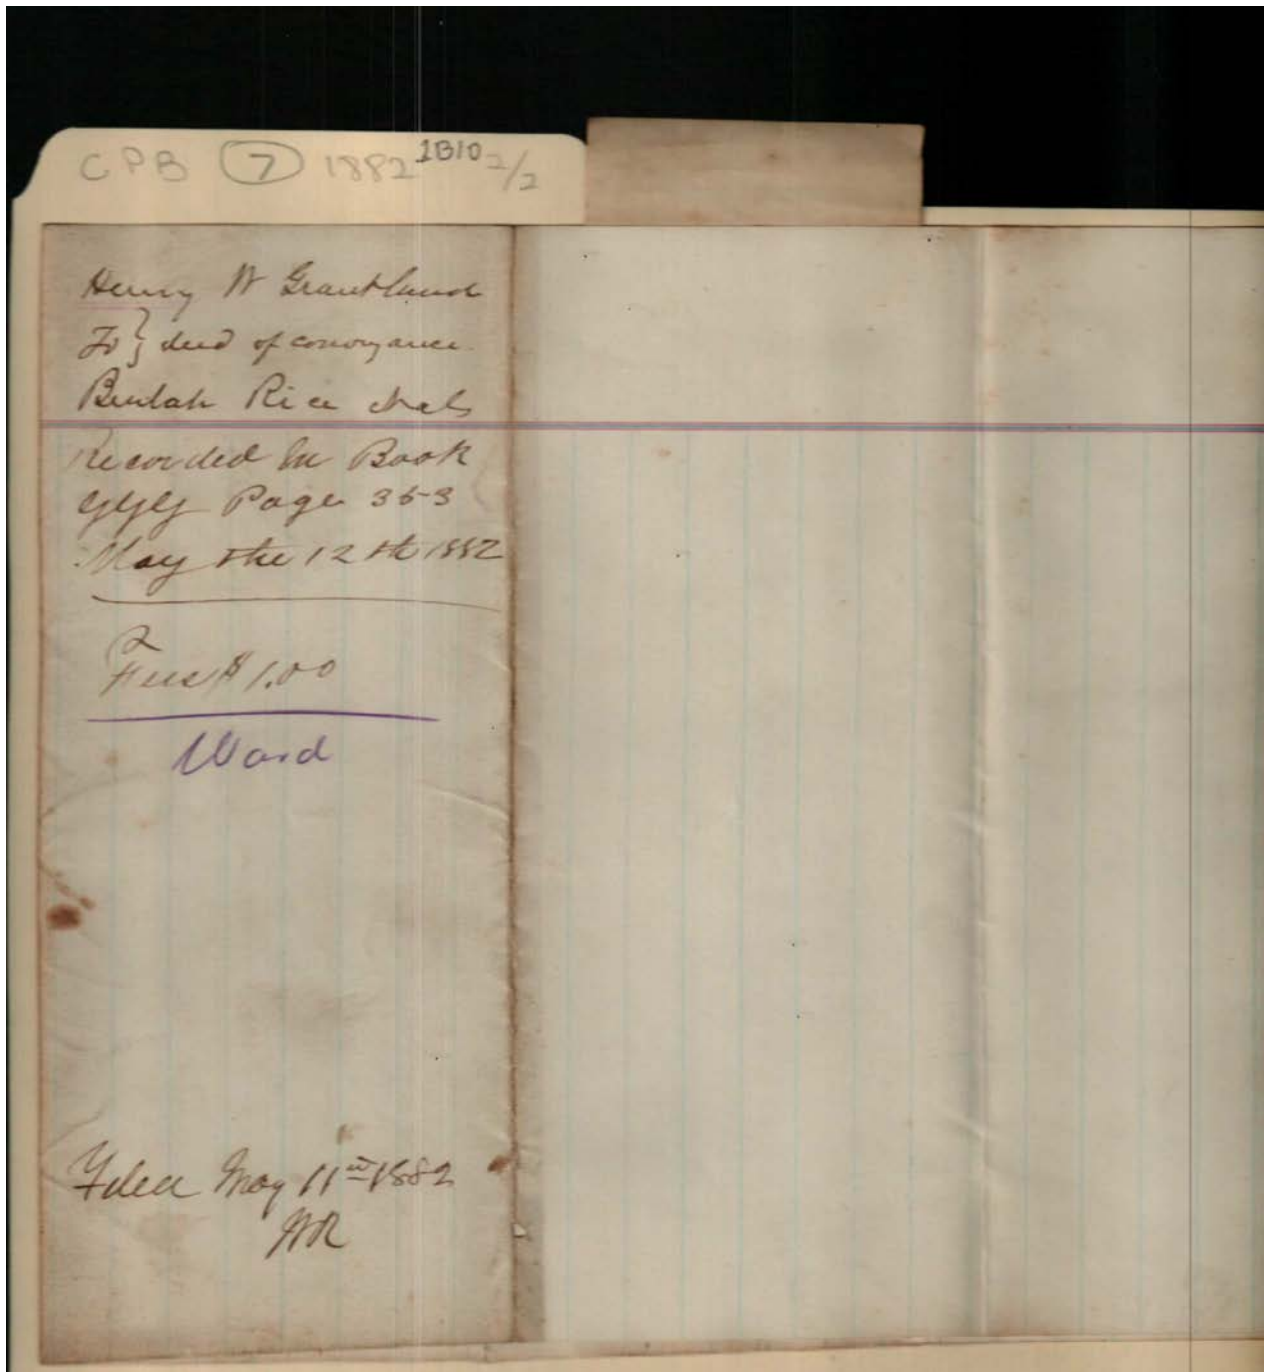 CPB 7 1882 1B10 2/2
Henry W Grantland
To } deed of conveyance.
Beulah Rice et als
Recorded In Book
YYY Page 353
May the 12th 1882
Fees $1.00
Ward
Filed May 11th 1882
WR